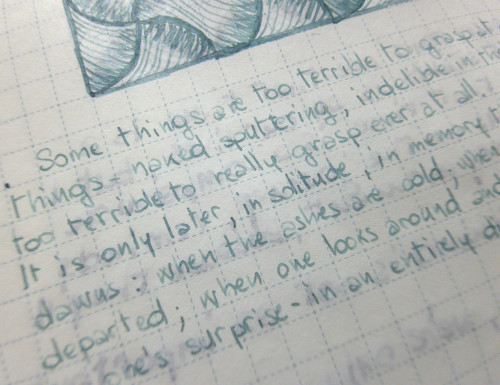 Some things are too terrible to grasp at
things - naked, sputtering, indelible in
too terrible to really grasp ever at all.
It is only later, in solitude, in memory
dawns: when the ashes are cold; when
departed; when one looks around and
one's surprise - in an entirely